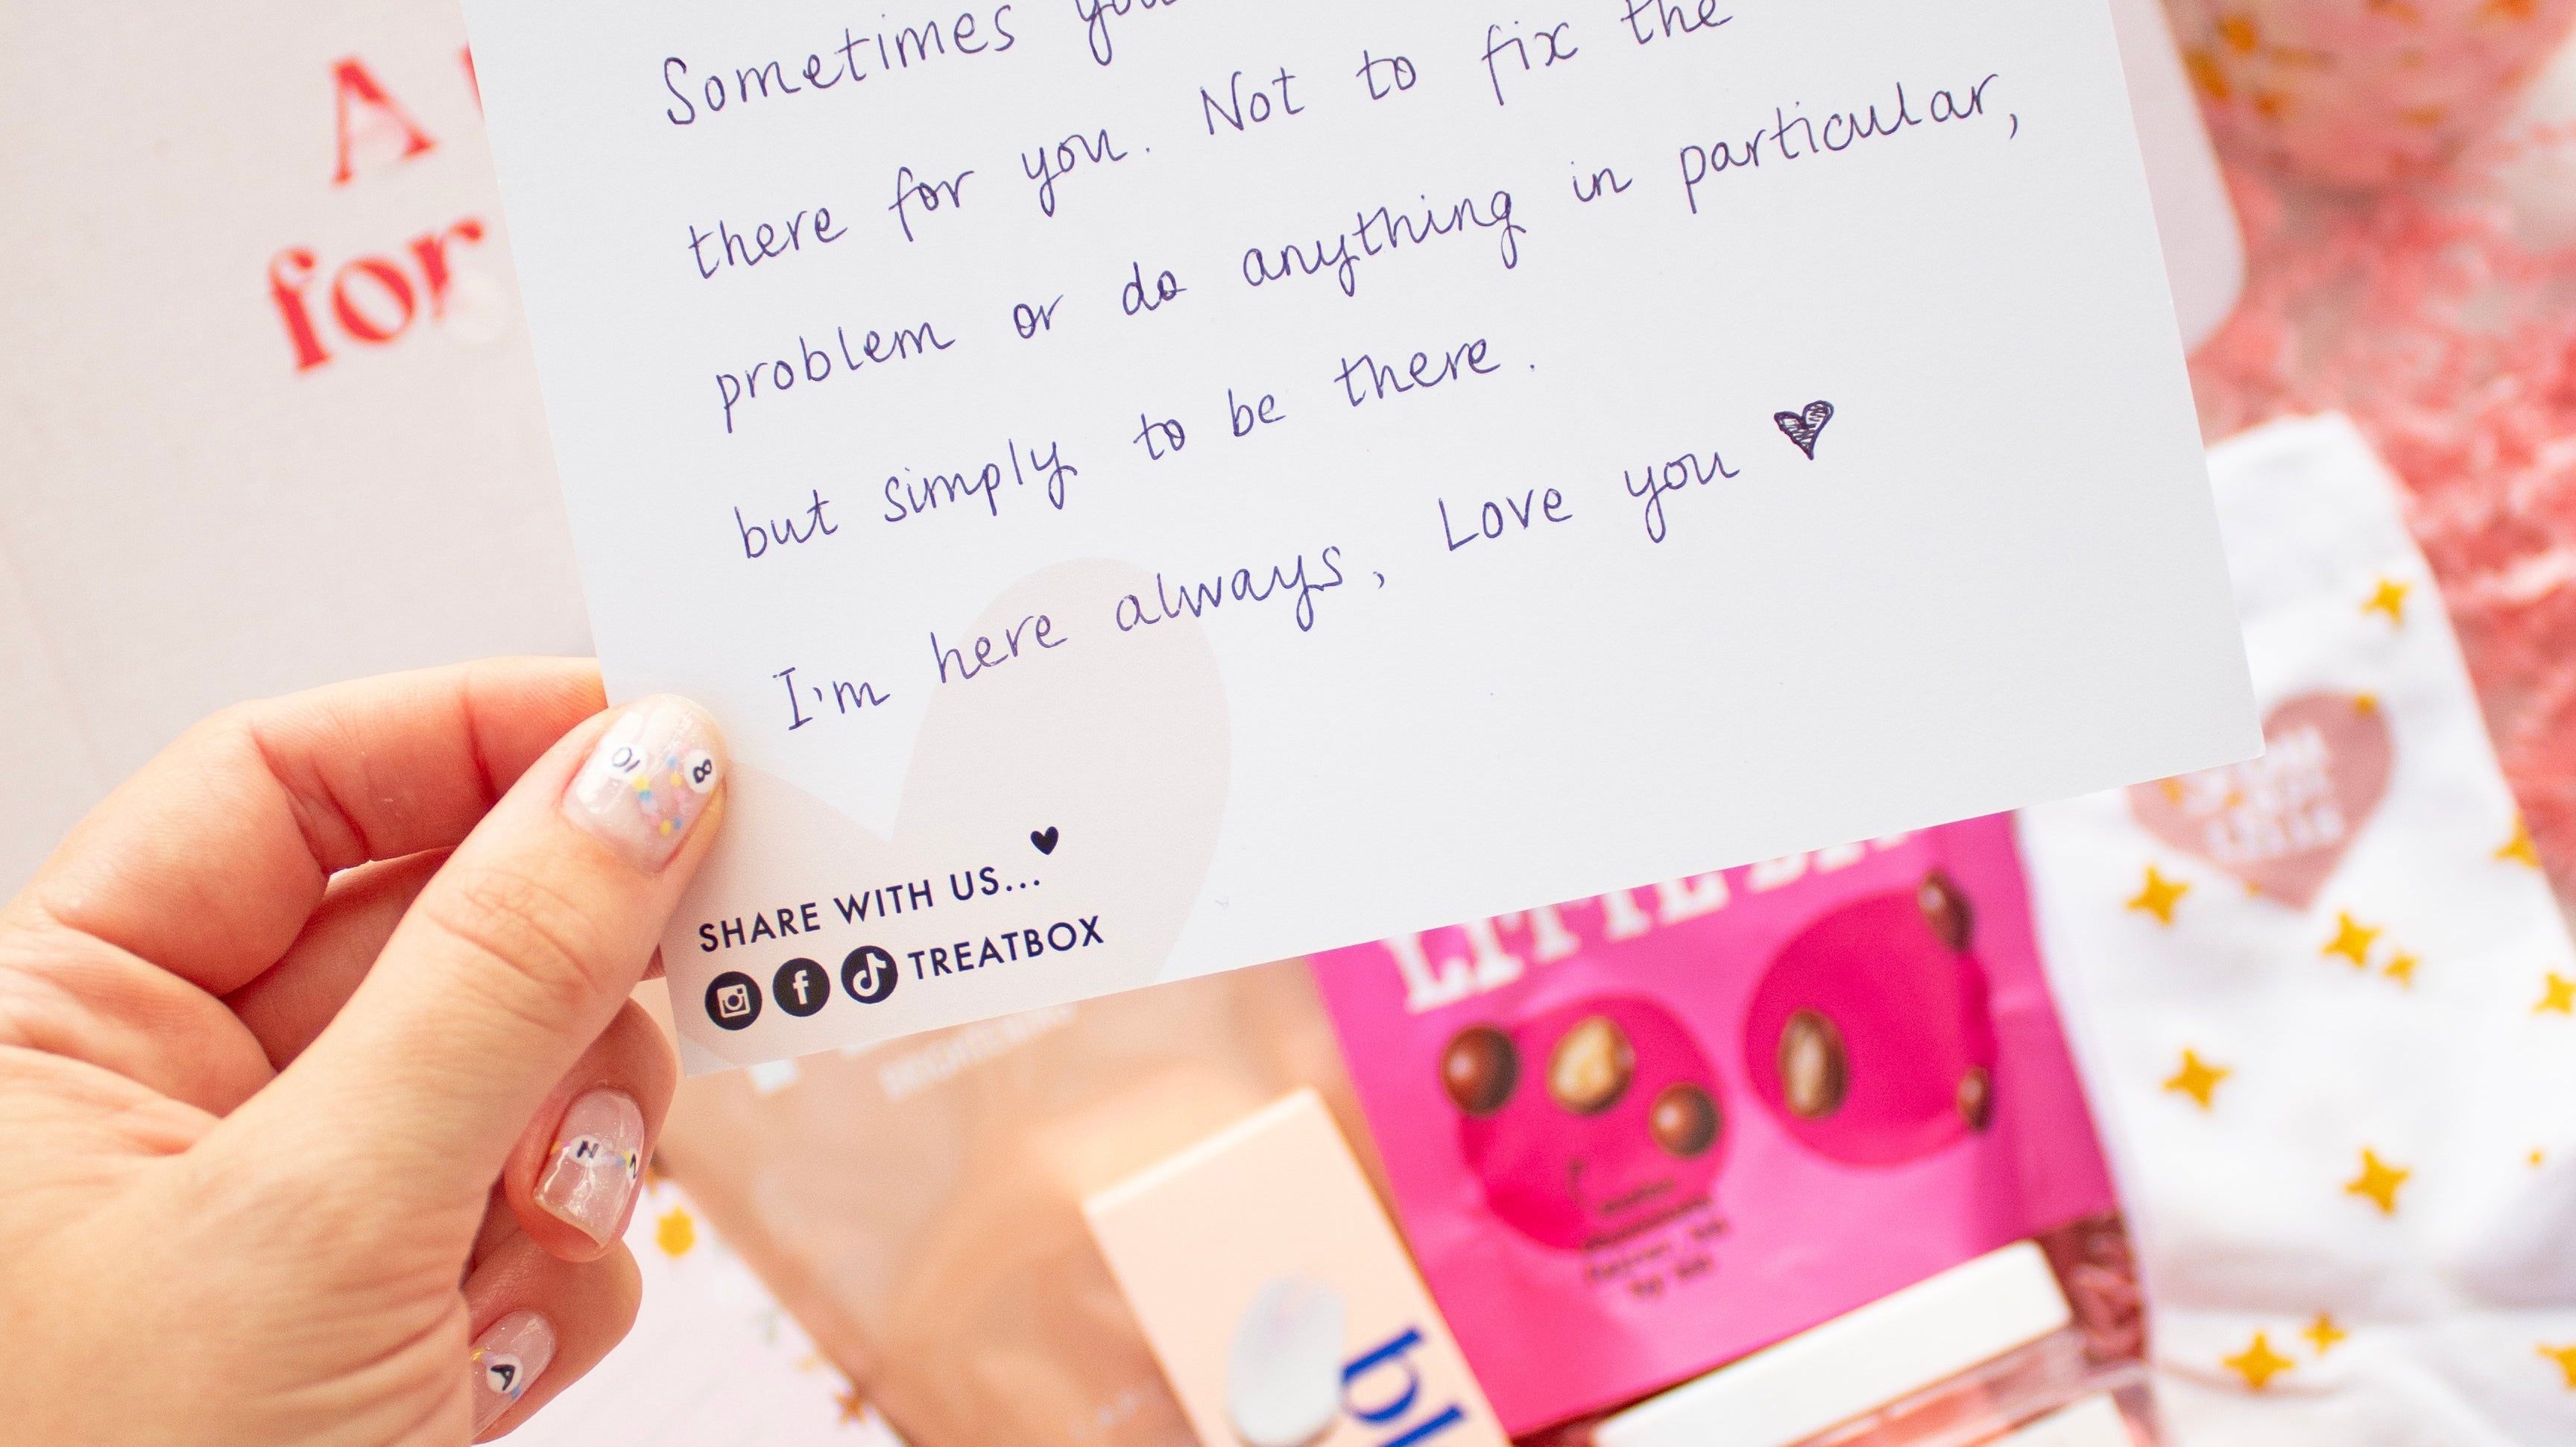 Sometimes you
there for you. Not to fix the
problem or do anything in particular,
but simply to be there.
I'm here always, Love you ♥
SHARE WITH US... ♥
TREATBOX
A
for
LITTLE
bl
10 8
N
A